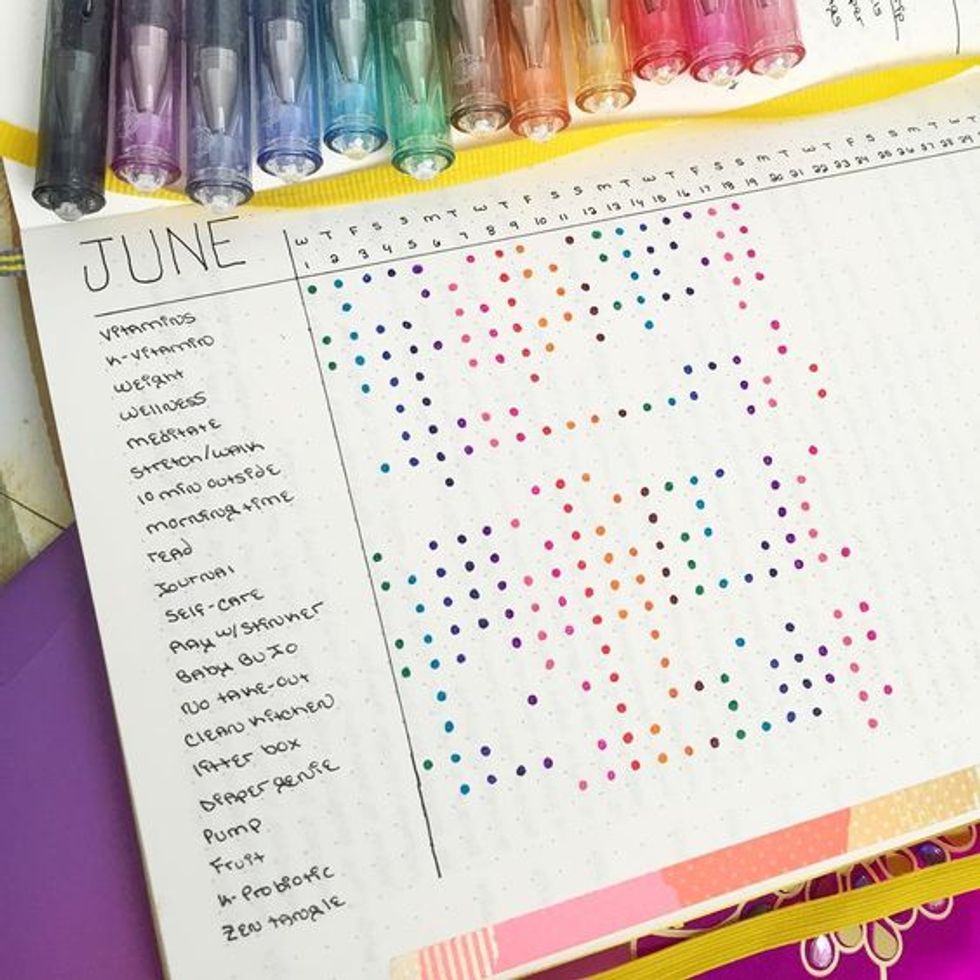 W T F S S M T W T F S S M T W T F S S M T W T F S S M T W
1 2 3 4 5 6 7 8 9 10 11 12 13 14 15 16 17 18 19 20 21 22 23 24 25 26 27 28 29
JUNE
VITAMINS
K-VITAMIN
WEIGHT
WELLNESS
MEDITATE
STRETCH/WALK
10 MIN OUTSIDE
MORNING TIME
READ
JOURNAL
SELF-CARE
W/SKINNER
BABY BUJO
NO TAKE-OUT
CLEAN KITCHEN
LITTER BOX
DIAPER GENIE
PUMP
FRUIT
K-PROBIOTIC
ZEN TANGLE